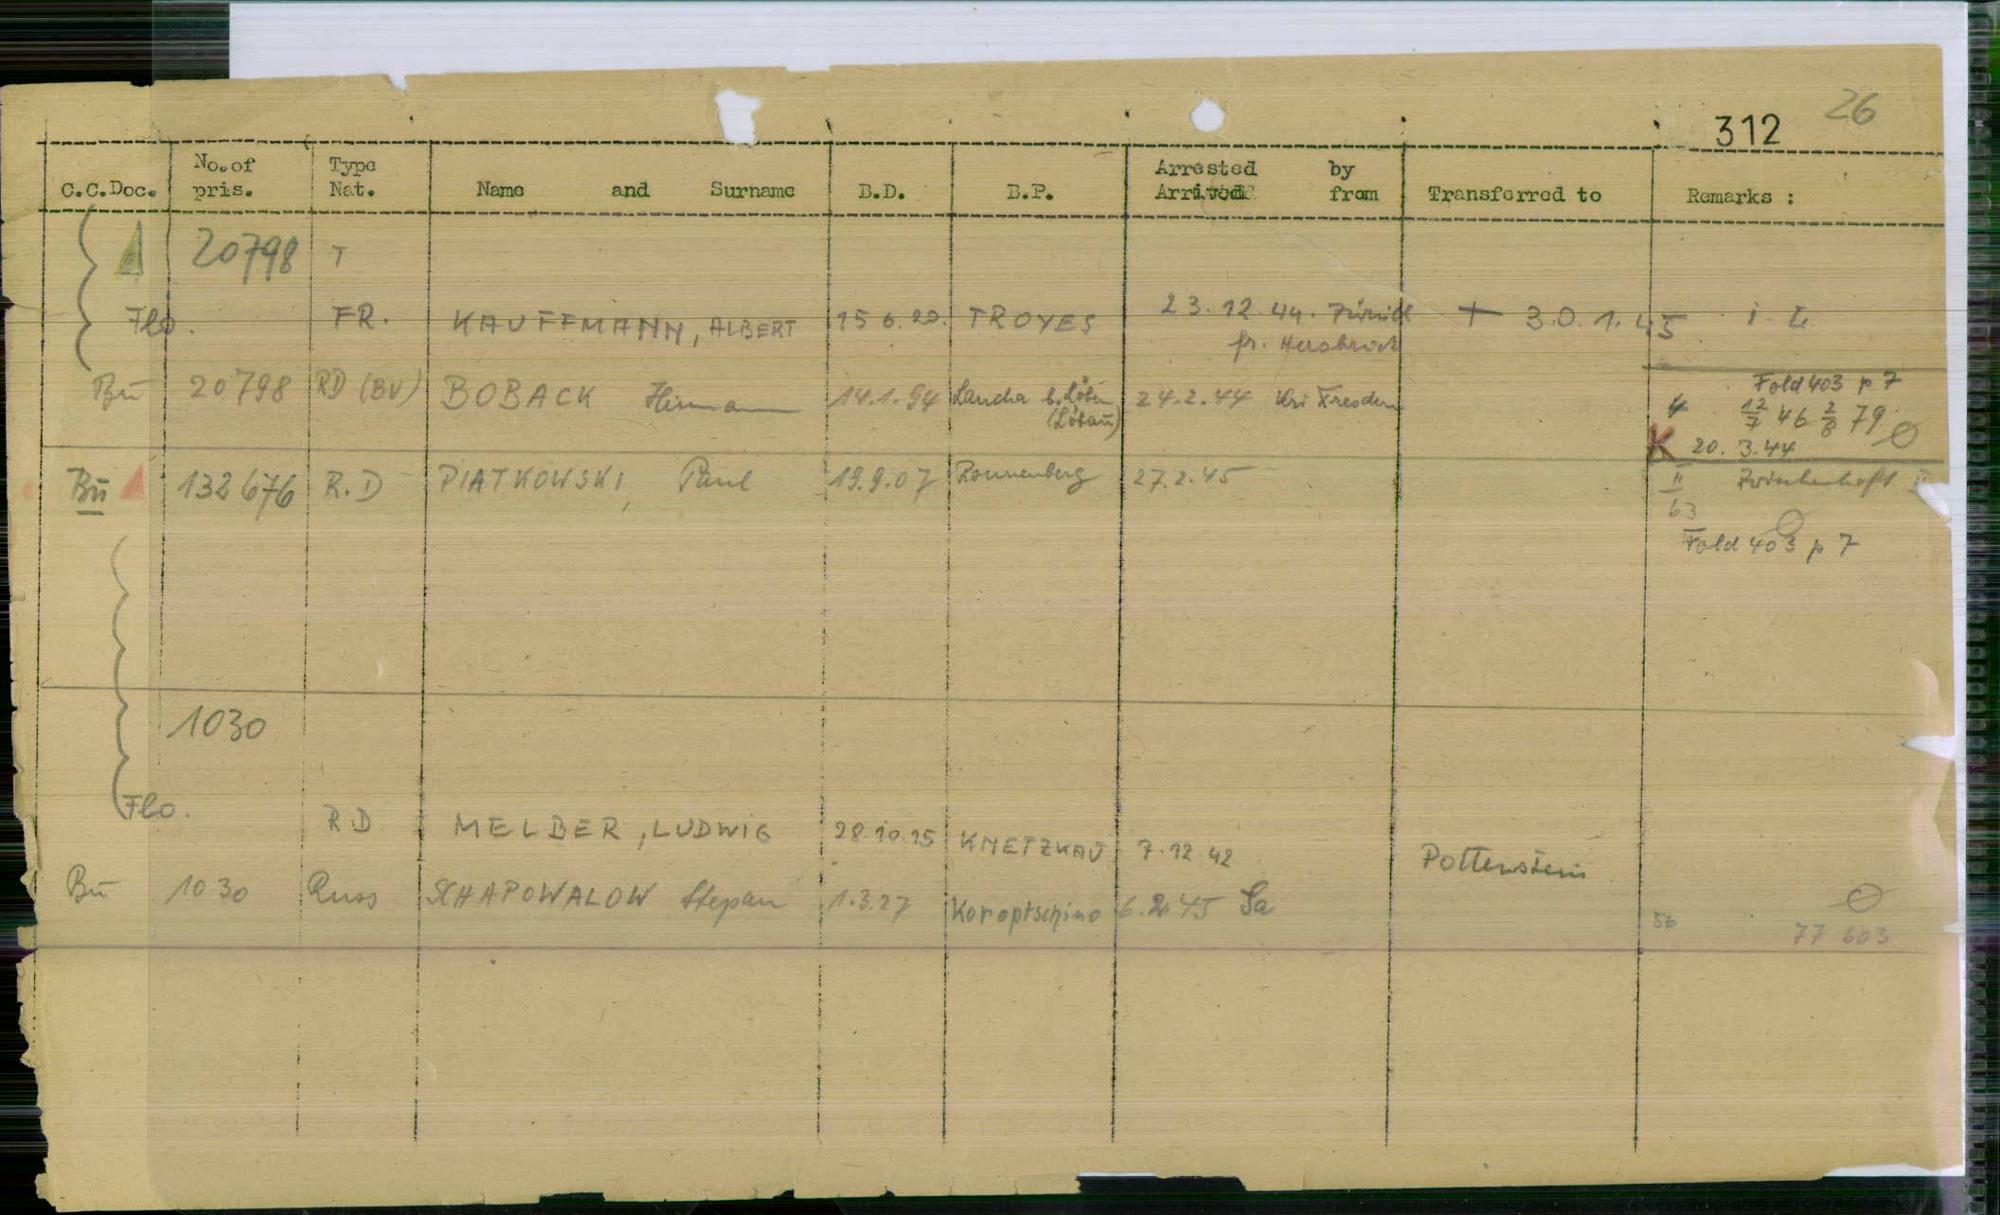 26
312
C.C.Doc. No.of pris. Type Nat. Name and Surname B.D. B.P. Arrested by Arrived from Transferred to Remarks :
20798 T
Flo. FR. KAUFFMANN, ALBERT 15 6.20. TROYES 23.12.44. + 30.1.45 i. L.
fr. Hersbruck
Fold 403 p 7
Bu 20798 RD (BV) BOBACK 14.1.94 Laucha b. Löben 24.2.44
(Löbau)
4 12/7 46 2/8 79
K 20. 3.44
Bu 132676 R.D PIATKOWSKI, Paul 19.9.07 Ronnenberg 27.2.45
II Zwischenhaft II
63
Fold 403 p 7
1030
Flo. RD MELBER, LUDWIG 28.10.15 KNETZKAU 7.12.42 Pottenstein
Bu 1030 Russ SCHAPOWALOW Stepan 1.3.27 Koroptschino 6.2.45 Sa
56 77 603